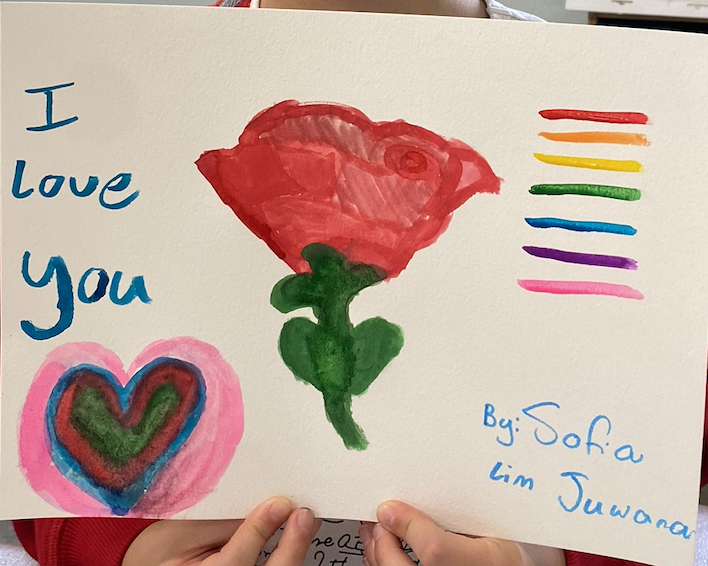 I
love
you
By: Sofia
Lim Juwana